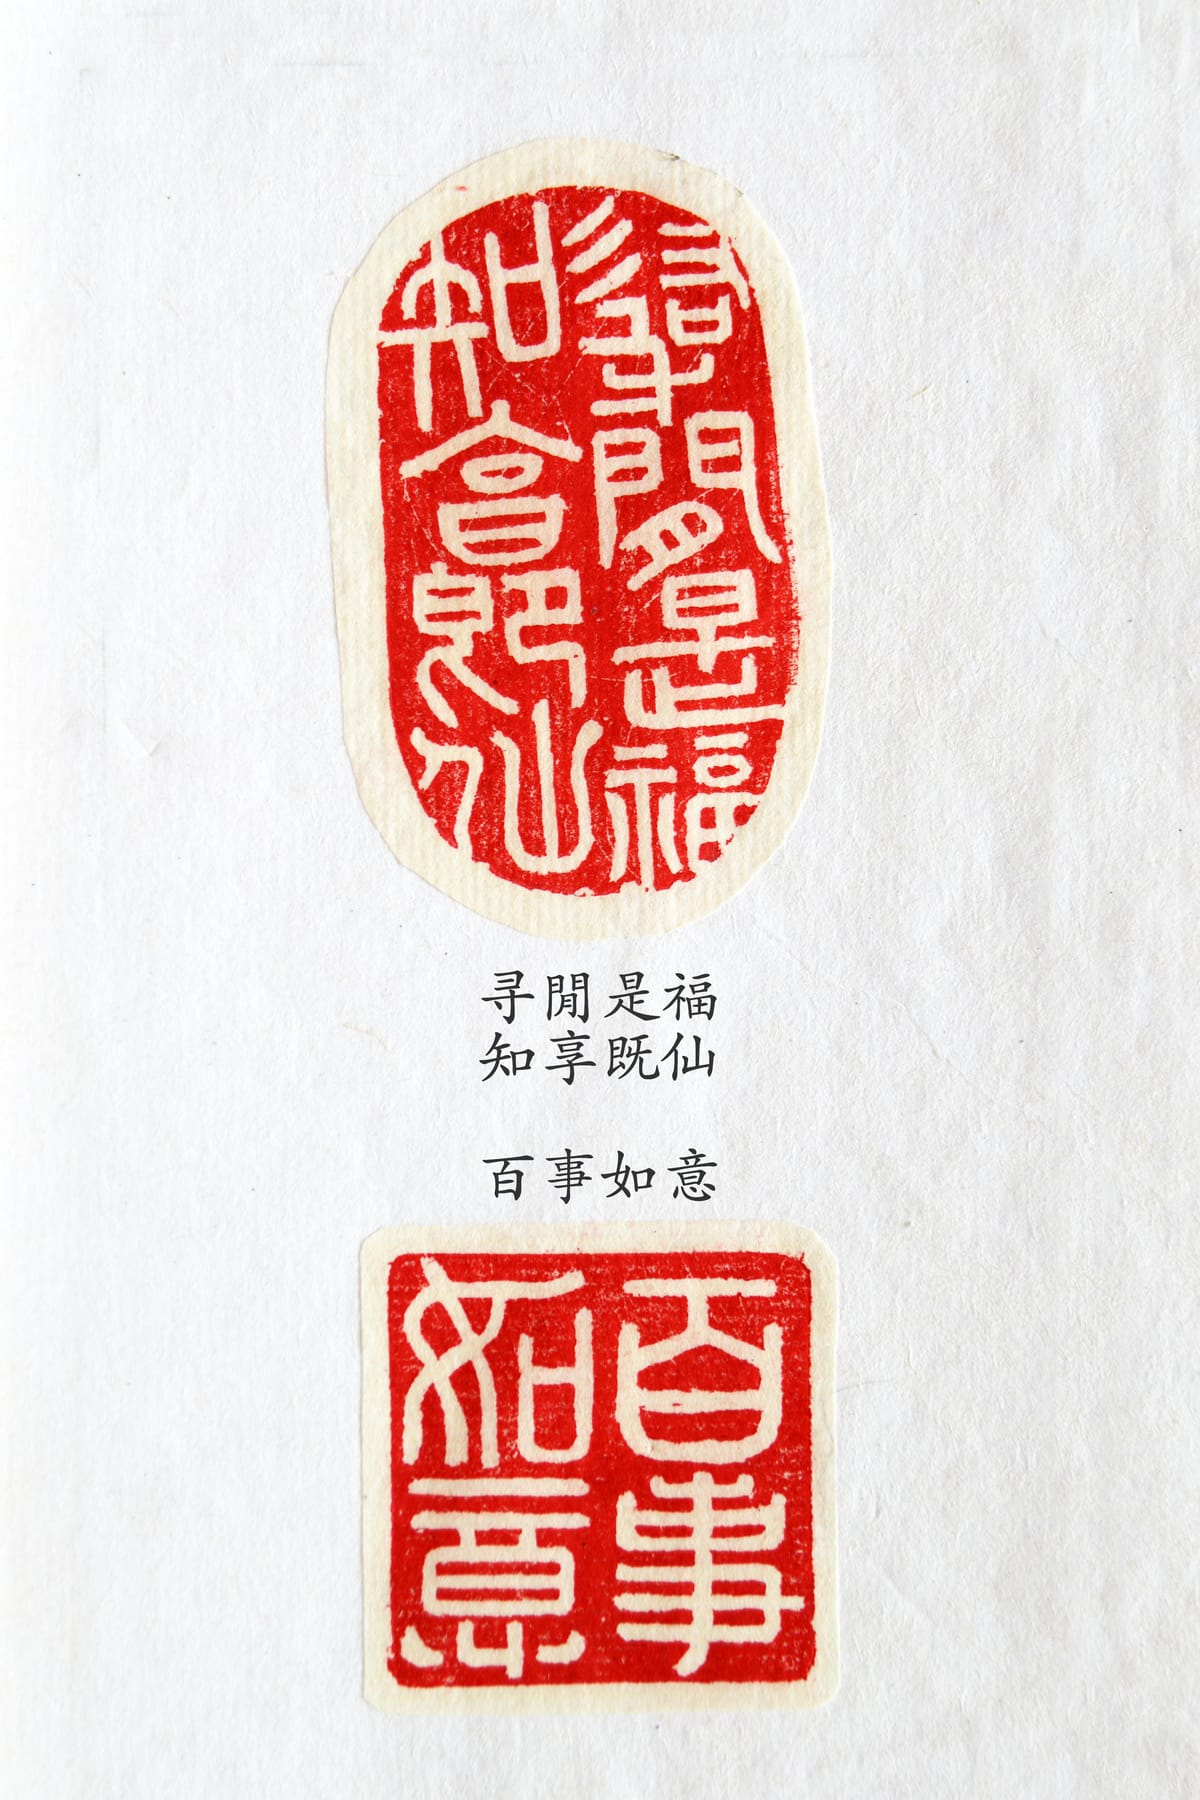 尋閒是福
知享即仙
寻閒是福
知享既仙
百事如意
百事
如意